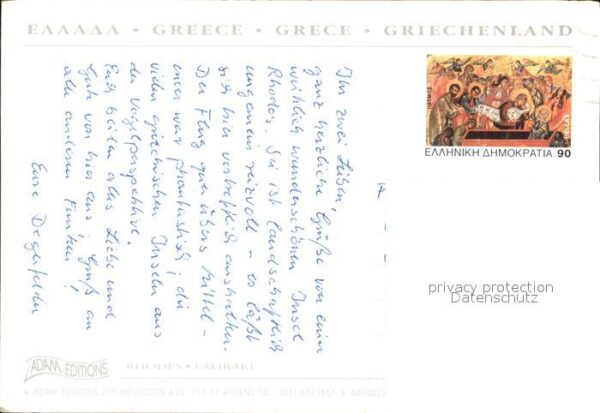 ΕΛΛΑΔΑ • GREECE • GRECE • GRIECHENLAND
ΠΑΤΜΟΣ
ΕΛΛΗΝΙΚΗ ΔΗΜΟΚΡΑΤΙΑ 90
Ihr zwei Lieben,
ganz herzliche Grüße von einer
wirklich wunderschönen Insel
Rhodos. Sie ist landschaftlich
ungemein reizvoll - es läßt
sich hier vortrefflich aushalten.
Der Flug quer übers Mittel-
meer war phantastisch, die
vielen griechischen Inseln aus
der Vogelperspektive.
Euch beiden alles Liebe und
Gute von hier aus, Gruß an
alle anderen
Eure
privacy protection
Datenschutz
ADAM EDITIONS
RHODES - FALIRAKI
ADAM EDITIONS 275 MESOGION AVE. 152 31 ATHENS TEL.: (01) 6721801-3, 6470072